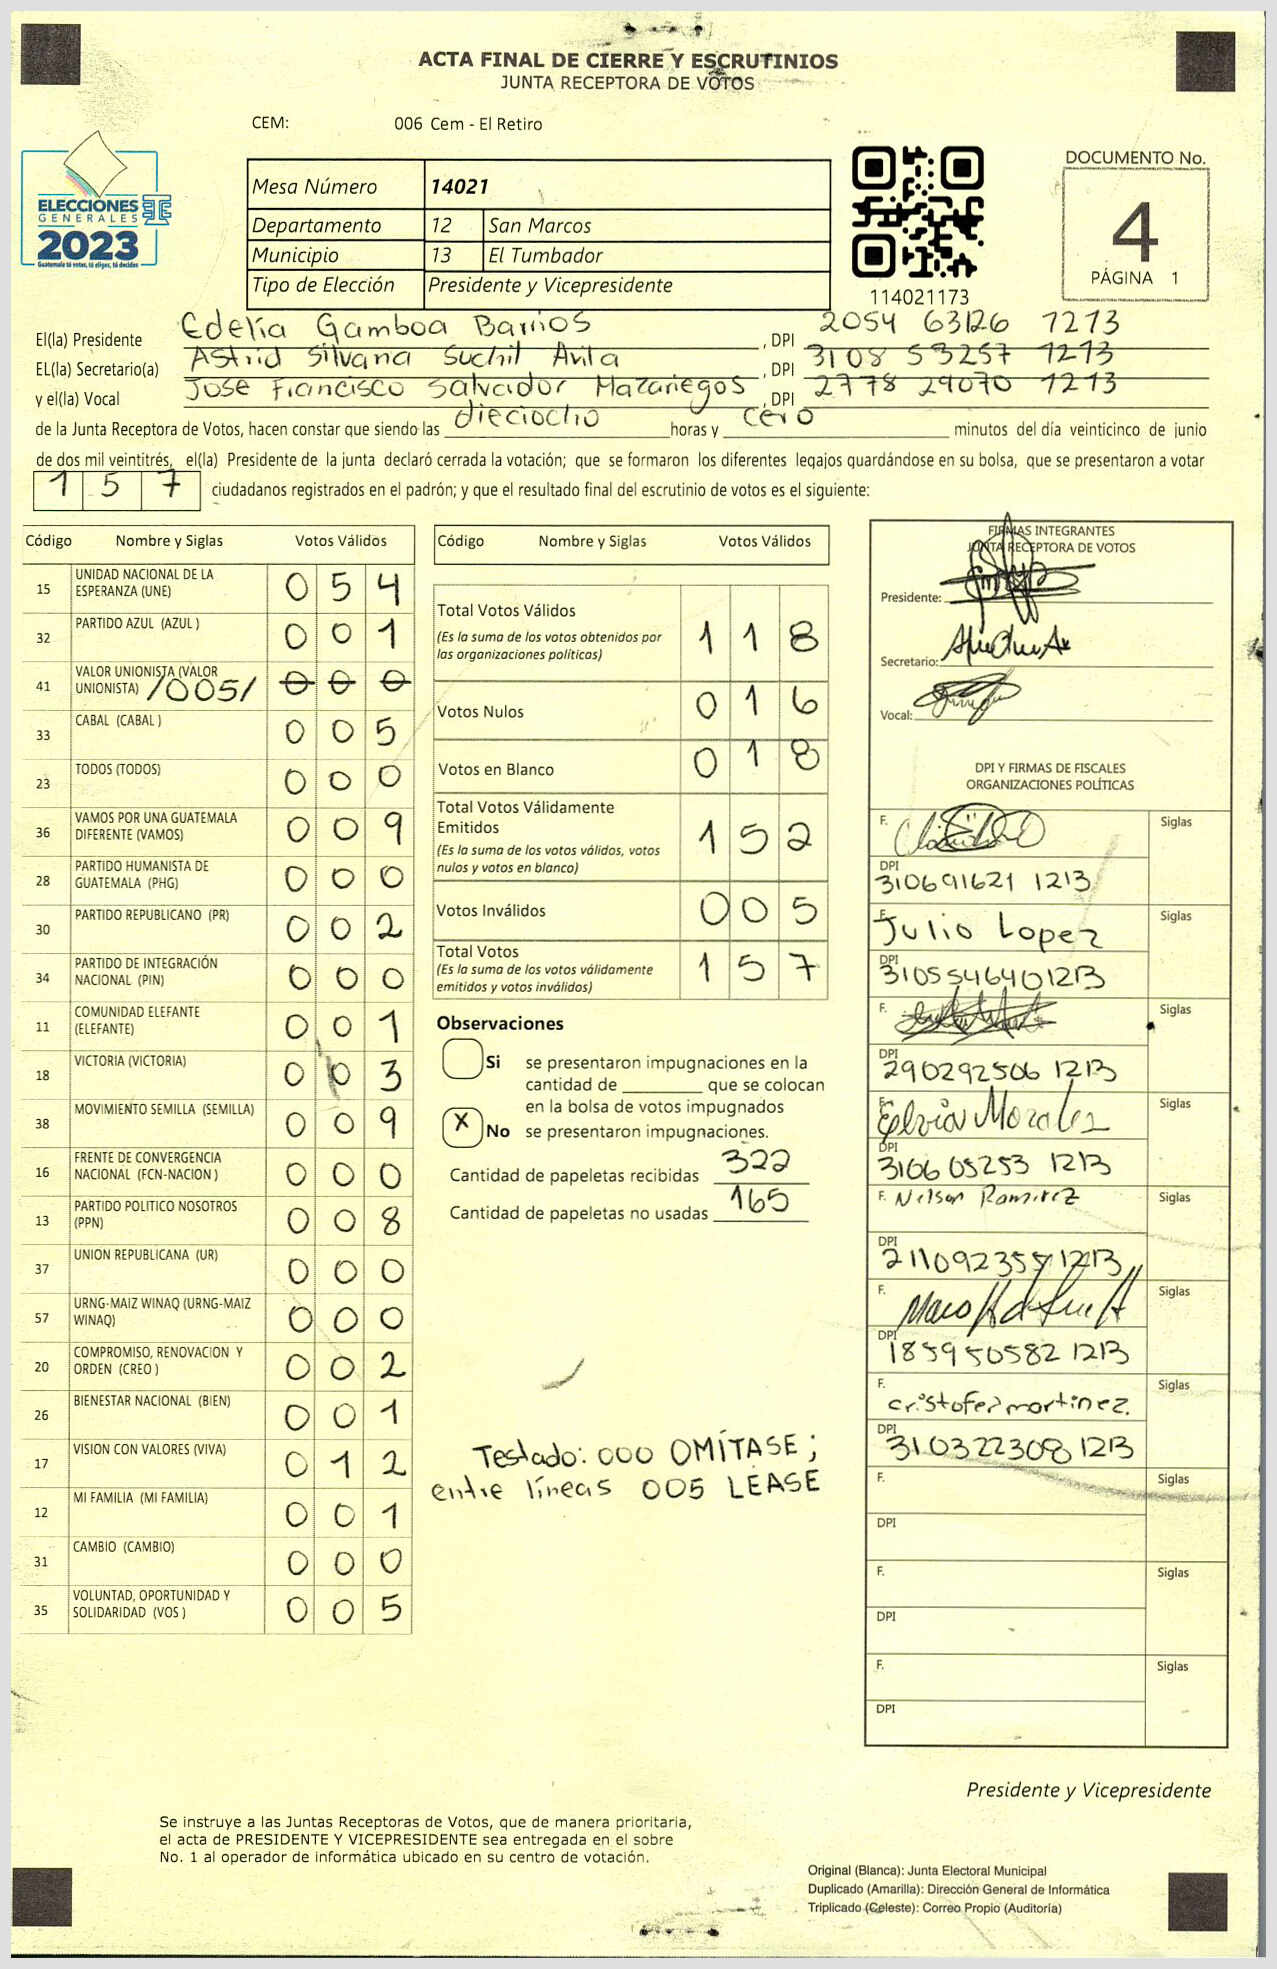 ACTA FINAL DE CIERRE Y ESCRUTINIOS
JUNTA RECEPTORA DE VOTOS
CEM: 006 Cem - El Retiro
ELECCIONES
GENERALES
2023
Guatemala tú votas, tú eliges, tú decides
Mesa Número 14021
Departamento 12 San Marcos
Municipio 13 El Tumbador
Tipo de Elección Presidente y Vicepresidente
114021173
DOCUMENTO No.
4
PÁGINA 1
El(la) Presidente Edelia Gamboa Barrios, DPI 2054 63126 1213
EL(la) Secretario(a) Astrid Silvana Suchil Avila, DPI 3108 53257 1213
y el(la) Vocal Jose Francisco Salvador Mazariegos, DPI 2778 29070 1213
de la Junta Receptora de Votos, hacen constar que siendo las dieciocho horas y cero minutos del día veinticinco de junio
de dos mil veintitrés, el(la) Presidente de la junta declaró cerrada la votación; que se formaron los diferentes legajos guardándose en su bolsa, que se presentaron a votar
1 5 7 ciudadanos registrados en el padrón; y que el resultado final del escrutinio de votos es el siguiente:
Código Nombre y Siglas Votos Válidos
15 UNIDAD NACIONAL DE LA ESPERANZA (UNE) 0 5 4
32 PARTIDO AZUL (AZUL ) 0 0 1
41 VALOR UNIONISTA (VALOR UNIONISTA) /005/ 0 0 0
33 CABAL (CABAL ) 0 0 5
23 TODOS (TODOS) 0 0 0
36 VAMOS POR UNA GUATEMALA DIFERENTE (VAMOS) 0 0 9
28 PARTIDO HUMANISTA DE GUATEMALA (PHG) 0 0 0
30 PARTIDO REPUBLICANO (PR) 0 0 2
34 PARTIDO DE INTEGRACIÓN NACIONAL (PIN) 0 0 0
11 COMUNIDAD ELEFANTE (ELEFANTE) 0 0 1
18 VICTORIA (VICTORIA) 0 0 3
38 MOVIMIENTO SEMILLA (SEMILLA) 0 0 9
16 FRENTE DE CONVERGENCIA NACIONAL (FCN-NACION ) 0 0 0
13 PARTIDO POLITICO NOSOTROS (PPN) 0 0 8
37 UNION REPUBLICANA (UR) 0 0 0
57 URNG-MAIZ WINAQ (URNG-MAIZ WINAQ) 0 0 0
20 COMPROMISO, RENOVACION Y ORDEN (CREO ) 0 0 2
26 BIENESTAR NACIONAL (BIEN) 0 0 1
17 VISION CON VALORES (VIVA) 0 1 2
12 MI FAMILIA (MI FAMILIA) 0 0 1
31 CAMBIO (CAMBIO) 0 0 0
35 VOLUNTAD, OPORTUNIDAD Y SOLIDARIDAD (VOS ) 0 0 5
Código Nombre y Siglas Votos Válidos
Total Votos Válidos 1 1 8
(Es la suma de los votos obtenidos por
las organizaciones políticas)
Votos Nulos 0 1 6
Votos en Blanco 0 1 8
Total Votos Válidamente
Emitidos 1 5 2
(Es la suma de los votos válidos, votos
nulos y votos en blanco)
Votos Inválidos 0 0 5
Total Votos 1 5 7
(Es la suma de los votos válidamente
emitidos y votos inválidos)
Observaciones
Si se presentaron impugnaciones en la
cantidad de ________ que se colocan
en la bolsa de votos impugnados
X No se presentaron impugnaciones.
Cantidad de papeletas recibidas 322
Cantidad de papeletas no usadas 165
Testado: 000 OMÍTASE;
entre líneas 005 LEASE
FIRMAS INTEGRANTES
JUNTA RECEPTORA DE VOTOS
Presidente:
Secretario:
Vocal:
DPI Y FIRMAS DE FISCALES
ORGANIZACIONES POLÍTICAS
F. Siglas
DPI
310691621 1213
F. Julio Lopez Siglas
DPI
3105546401213
F. Siglas
DPI
290292506 1213
F. Elvia Morales Siglas
DPI
310605253 1213
F. Nelson Ramirez Siglas
DPI
211092355 1213
F. Siglas
DPI
185950582 1213
F. cristofer martinez. Siglas
DPI
310322308 1213
F. Siglas
DPI
F. Siglas
DPI
F. Siglas
DPI
Presidente y Vicepresidente
Se instruye a las Juntas Receptoras de Votos, que de manera prioritaria,
el acta de PRESIDENTE Y VICEPRESIDENTE sea entregada en el sobre
No. 1 al operador de informática ubicado en su centro de votación.
Original (Blanca): Junta Electoral Municipal
Duplicado (Amarilla): Dirección General de Informática
Triplicado (Celeste): Correo Propio (Auditoría)